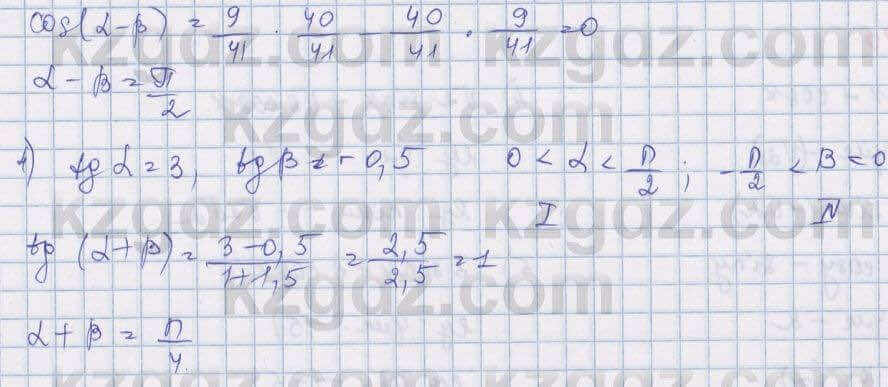 cos(α-β) = 9/41 · 40/41 - 40/41 · 9/41 = 0
α - β = π/2
1) tg α = 3, tg β = -0,5 0 < α < π/2 ; -π/2 < β < 0
I IV
tg (α+β) = (3-0,5)/(1+1,5) = 2,5/2,5 = 1
α + β = π/4
kzgdz.com